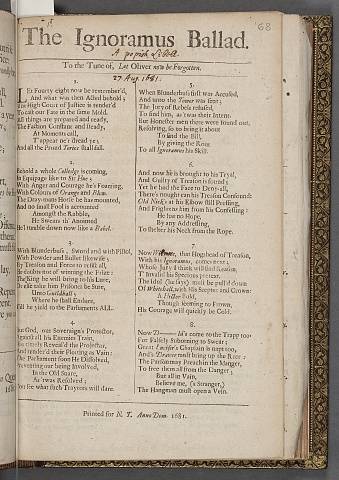 68
The Ignoramus Ballad.
A popish Libell
To the Tune of, Let Oliver now be Forgotten.
27 Aug. 1681.
1.
LEt Fourty eight now be remember'd,
And what was then Acted behold;
The High Court of Justice is tender'd
To cast our Fate in the same Mold.
All things are prepared and ready,
The Fashion Constant and steady,
At Moments call,
T'appear ne're dread ye;
And all the Proud Tories shall fall.
2.
Behold a whole Colledge is coming,
In Equipage like to Sir
With Anger and Courage he's Foaming,
With Colours of Orange and
The Dray-mans Horse he has mounted,
And no small Fool is accounted
Amongst the Rabble,
He Swears th' Anointed
He'l tumble down now like a Babel.
3.
With Blunderbuss, Sword and with Pistol,
With Powder and Bullet likewise;
By Treason and Force to resist all,
He doubts not of winning the Prize:
The King he will bring to his Lure,
Or else take him Prisoner be sure,
Unto Guildhall;
Where he shall Endure,
Till he yield to the Parliaments ALL.
4.
But God, our Soveraign's Protector,
Against all his Enemies Train,
His Secrets Reveal'd the Projector,
And render'd their Plotting as Vain:
The Parliament soon He Dissolved,
Preventing our being Involved,
In the Old Snare,
As 'twas Resolved;
You see what such Traytors will dare.
5.
When Blunderbuss first was Accused,
And unto the Tower was sent;
The Jury of Rebels refused,
To find him, as 'twas their Intent.
But Honester men there were found out,
Resolving, so to bring it about
To find the Bill,
By giving the Rout
To all Ignoramus his Skill.
6.
And now he is brought to his Tryal,
And Guilty of Treason is found;
Yet he had the Face to Deny-all,
There's nought can his Treason Confound:
Old Nick's at his Elbow still Pressing,
And Frightens him from his Confessing:
He has no Hope,
By any Addressing,
To shelter his Neck from the Rope.
7.
Now that Hogshead of Treason,
With his Ignoramus, comes next;
Whole Jury I think will find Reason,
T' Invalid his Specious pretext.
The Idol (he says) must be pull'd down
Of Whitehall, with his Scepter and Crown:
Though seeming to Frown,
His Courage will quickly be Cold.
8.
Now is come to the Trap too
For Falsely Suborning to Swear;
Great Lucifer's Chaplain is napt too,
And's Traitor must bring up the Rear:
The Parsons may Preach in the Manger,
To free them all from the Danger;
But all in Vain,
Believe me, (a Stranger,)
The Hangman must open a Vein.
Printed for N. T. Anno Dom. 1681.